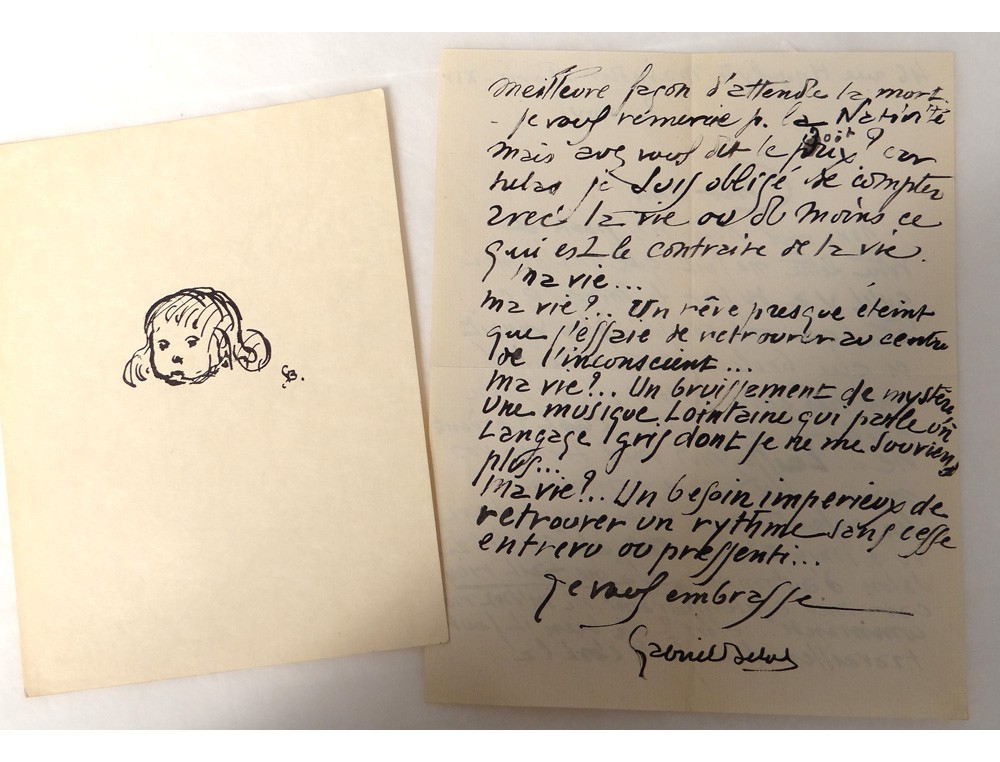 G.B.
meilleure façon d'attendre la mort.
- je vous remercie p. la Nativité
mais avez vous dit le prix? car
helas je suis obligé de compter
avec la vie ou du moins ce
qui est le contraire de la vie.
Ma vie...
Ma vie?.. Un rêve presque éteint
que j'essaie de retrouver au centre
de l'inconscient...
Ma vie?.. Un bruissement de mystère,
Une musique Lointaine qui parle un
Langage gris dont je ne me souviens
plus...
Ma vie?.. Un besoin imperieux de
retrouver un rythme sans cesse
entrevu ou pressenti...
Je vous embrasse
Gabriel